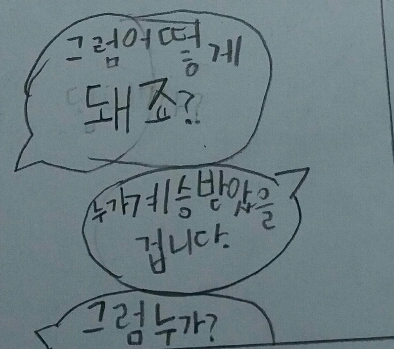 그럼어떻게
돼죠?
누가계승받았을
겁니다.
그럼누가?